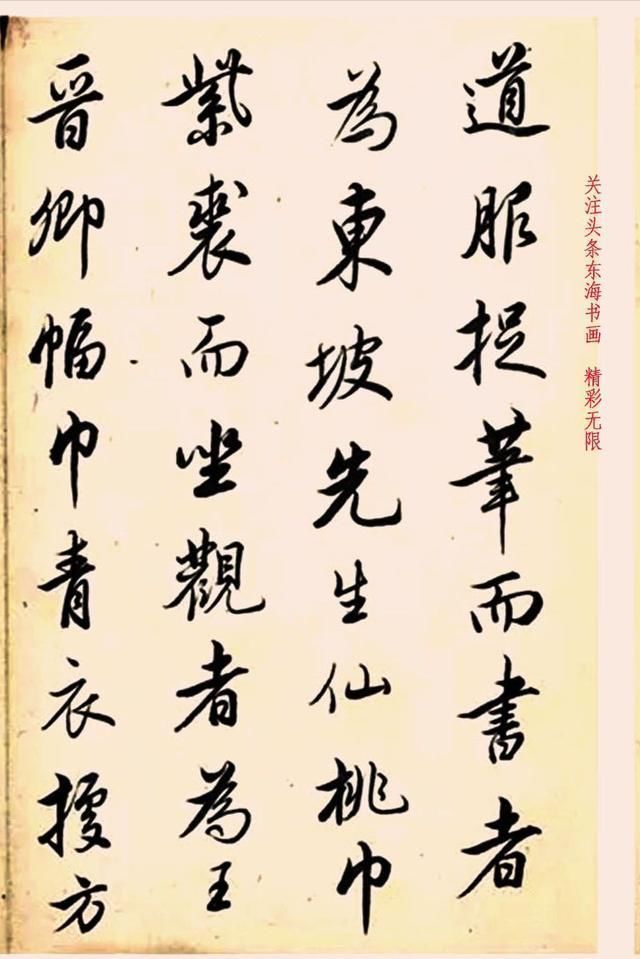 道服捉筆而書者
為東坡先生仙桃巾
紫裘而坐觀者為王
晉卿幅巾青衣據方
关注头条东海书画 精彩无限